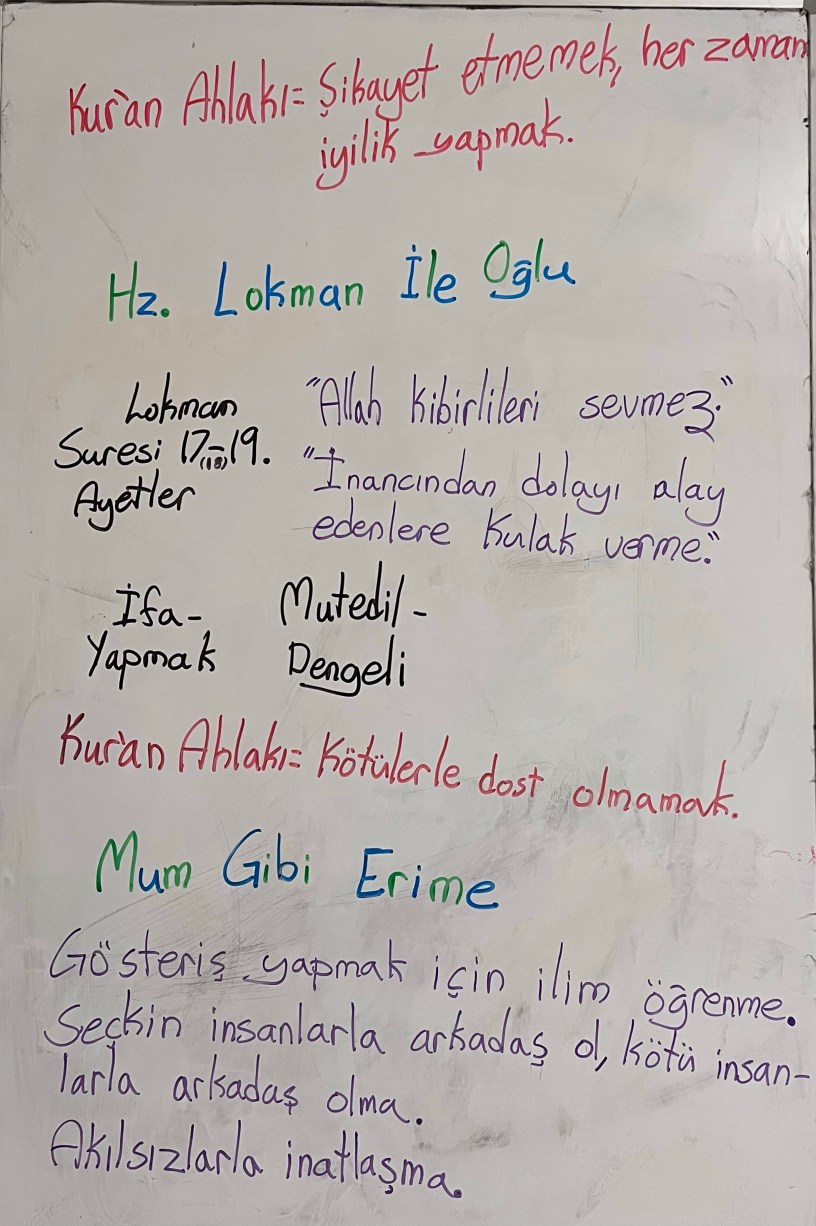 Kur'an Ahlakı= Şikayet etmemek, her zaman
iyilik yapmak.
Hz. Lokman İle Oğlu
Lokman
Suresi 17-19.
(18)
Ayetler
"Allah kibirlileri sevmez."
"İnancından dolayı alay
edenlere kulak verme."
İfa-
Yapmak
Mutedil-
Dengeli
Kur'an Ahlakı= Kötülerle dost olmamak.
Mum Gibi Erime
Gösteriş yapmak için ilim öğrenme.
Seçkin insanlarla arkadaş ol, kötü insan-
larla arkadaş olma.
Akılsızlarla inatlaşma.